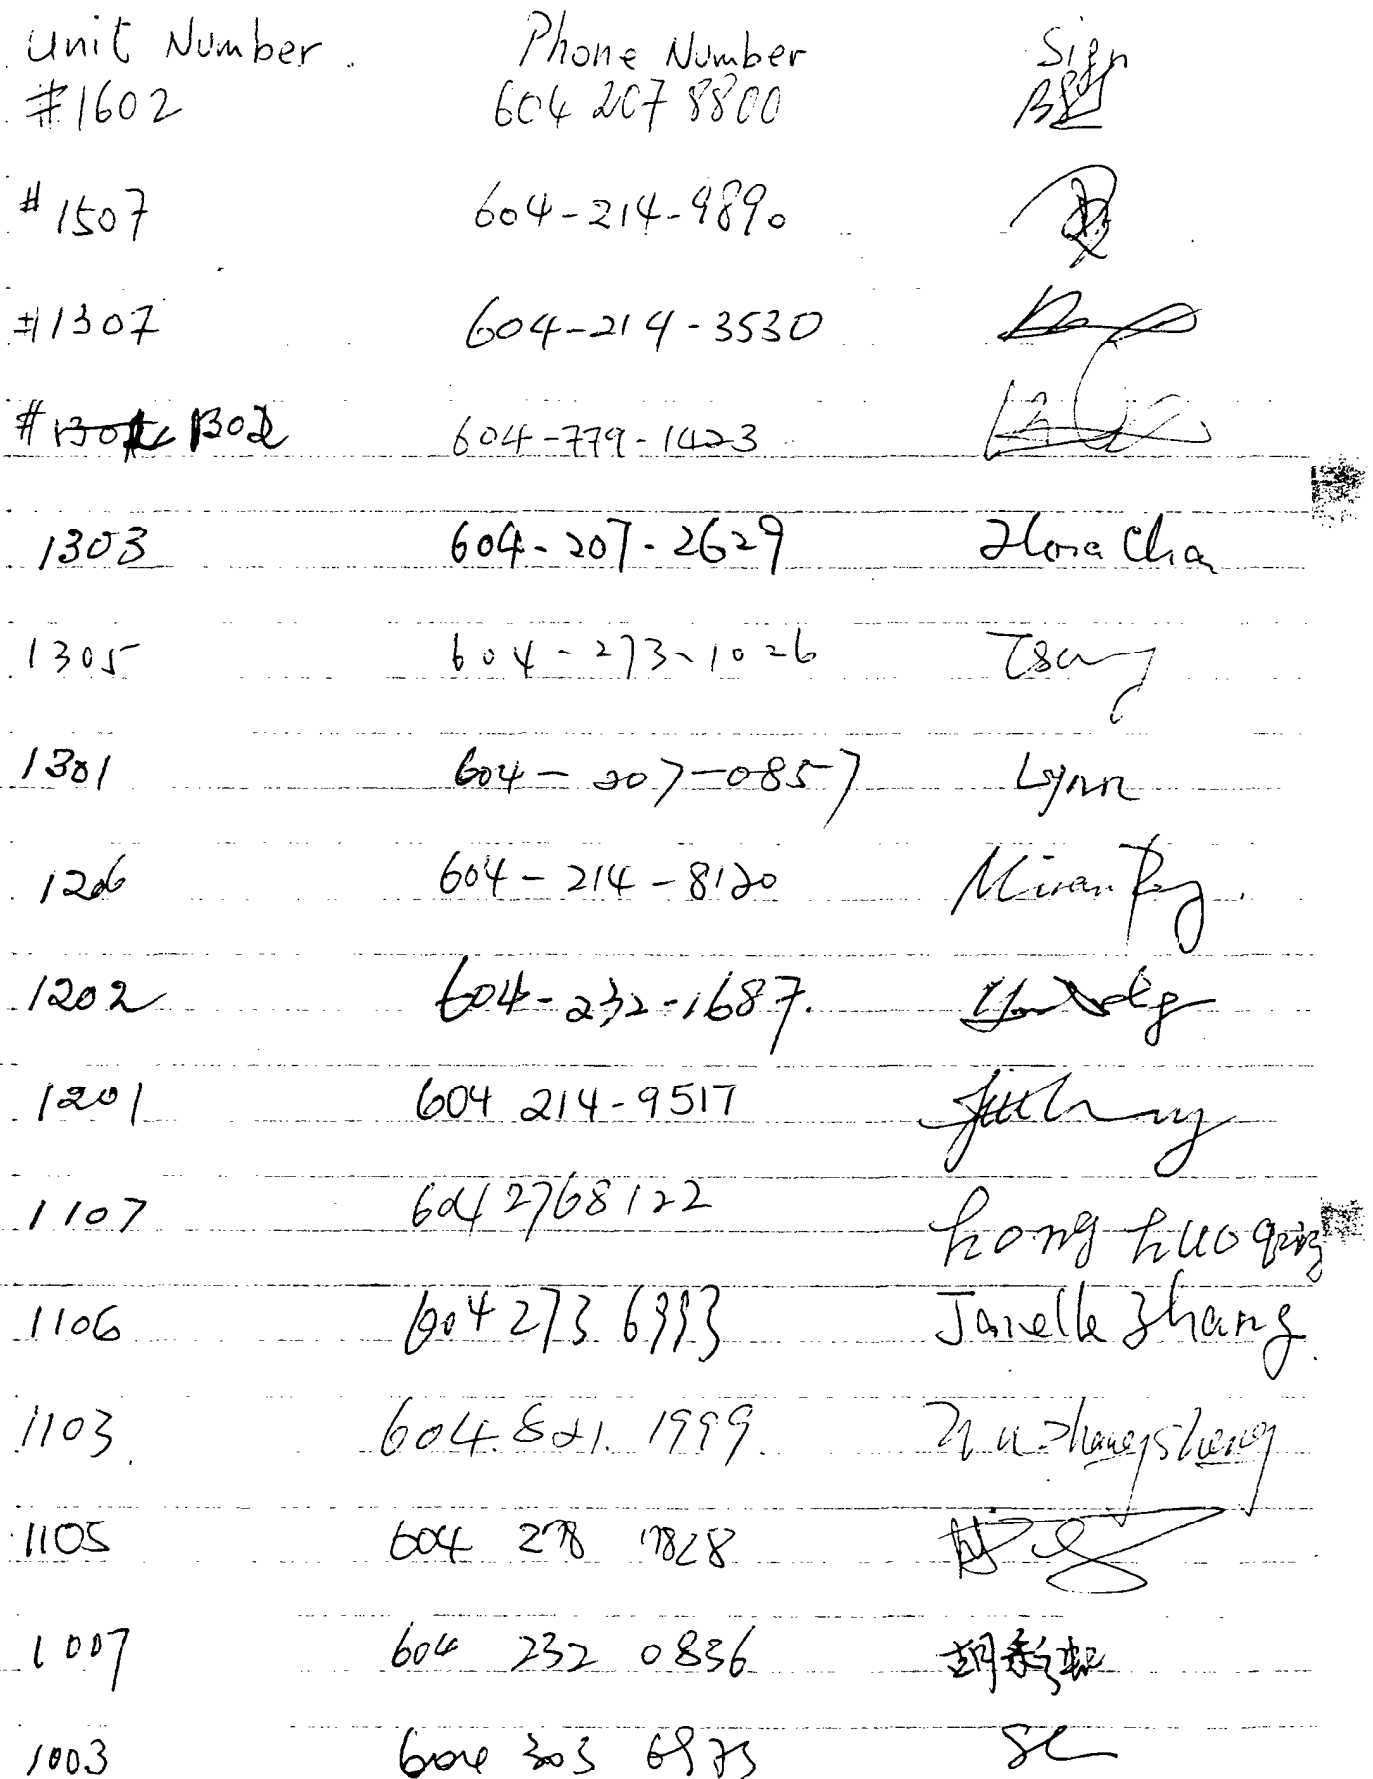 Unit Number Phone Number Sign
#1602 604 207 8800
#1507 604-214-9890
#1307 604-214-3530
#1302 604-779-1423
1303 604-207-2629
1305 604-273-1026 Tsang
1301 604-207-0857 Lynn
1206 604-214-8120
1202 604-232-1687.
1201 604 214-9517
1107 604 2768122 hong huo qing
1106 604 273 6993 Janelle Zhang
1103 604.821.1999.
1105 604 278 7828
1007 604 232 0836
1003 604 303 6973